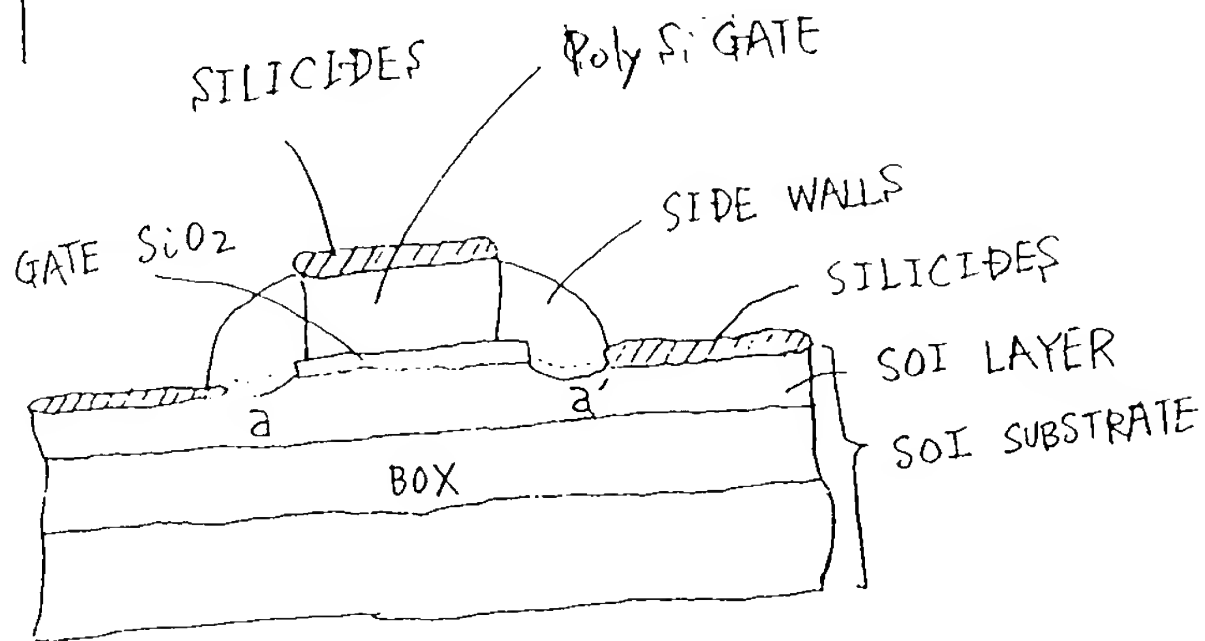 SILICIDES
Poly Si GATE
SIDE WALLS
GATE SiO2
SILICIDES
SOI LAYER
SOI SUBSTRATE
a
a'
BOX